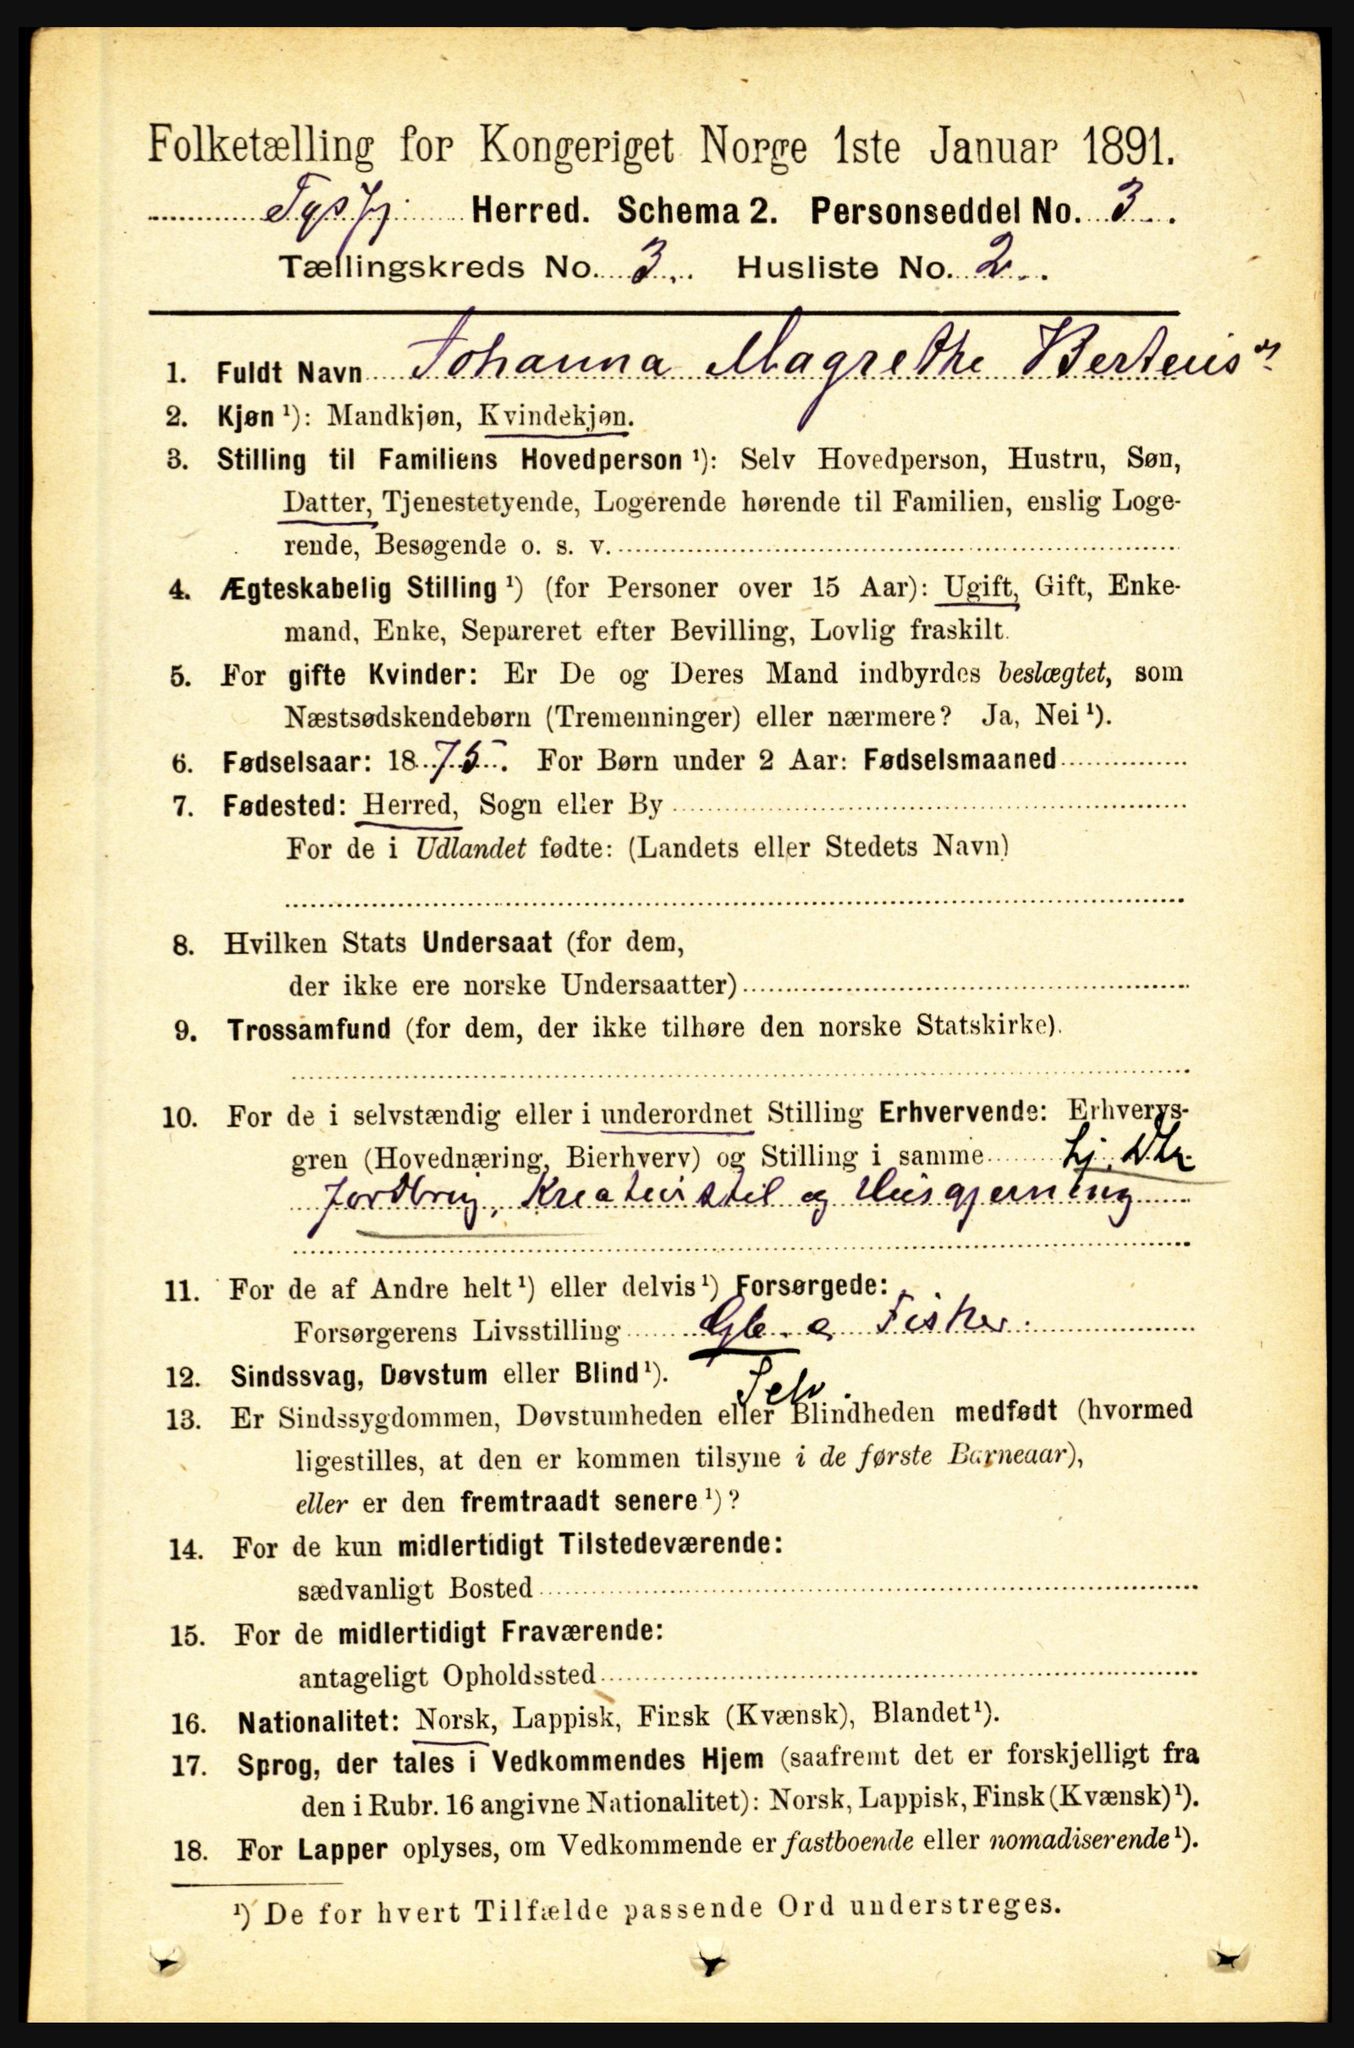 Folketælling for Kongeriget Norge 1ste Januar 1891.
Tysfj. Herred. Schema 2. Personseddel No. 3.
Tællingskreds No. 3. Husliste No. 2.
1. Fuldt Navn Johanna Magrethe Berteusd
2. Kjøn ¹): Mandkjøn, Kvindekjøn.
3. Stilling til Familiens Hovedperson ¹): Selv Hovedperson, Hustru, Søn,
Datter, Tjenestetyende, Logerende hørende til Familien, enslig Loge-
rende, Besøgende o. s. v.
4. Ægteskabelig Stilling ¹) (for Personer over 15 Aar): Ugift, Gift, Enke-
mand, Enke, Separeret efter Bevilling, Lovlig fraskilt.
5. For gifte Kvinder: Er De og Deres Mand indbyrdes beslægtet, som
Næstsødskendebørn (Tremenninger) eller nærmere? Ja, Nei ¹).
6. Fødselsaar: 1875. For Børn under 2 Aar: Fødselsmaaned
7. Fødested: Herred, Sogn eller By
For de i Udlandet fødte: (Landets eller Stedets Navn)
8. Hvilken Stats Undersaat (for dem,
der ikke ere norske Undersaatter)
9. Trossamfund (for dem, der ikke tilhøre den norske Statskirke).
10. For de i selvstændig eller i underordnet Stilling Erhvervende: Erhvervs-
gren (Hovednæring, Bierhverv) og Stilling i samme
Jordbrug, Kreaturstel og Husgjerning
11. For de af Andre helt ¹) eller delvis ¹) Forsørgede:
Forsørgerens Livsstilling Gb. o Fisker.
12. Sindssvag, Døvstum eller Blind ¹). Selv.
13. Er Sindssygdommen, Døvstumheden eller Blindheden medfødt (hvormed
ligestilles, at den er kommen tilsyne i de første Barneaar),
eller er den fremtraadt senere ¹)?
14. For de kun midlertidigt Tilstedeværende:
sædvanligt Bosted
15. For de midlertidigt Fraværende:
antageligt Opholdssted
16. Nationalitet: Norsk, Lappisk, Finsk (Kvænsk), Blandet ¹).
17. Sprog, der tales i Vedkommendes Hjem (saafremt det er forskjelligt fra
den i Rubr. 16 angivne Nationalitet): Norsk, Lappisk, Finsk (Kvænsk) ¹).
18. For Lapper oplyses, om Vedkommende er fastboende eller nomadiserende ¹).
¹) De for hvert Tilfælde passende Ord understreges.